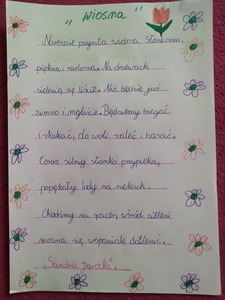 "Wiosna"
Nareszcie przyszła wiosna słoneczna,
piękna i radosna. Na drzewach
zielenią się liście. Nie będzie już
zimno i mgliście. Będziemy biegać
i skakać, do woli szaleć i hasać.
Coraz silniej słonko przypieka,
popękały lody na rzekach.
Chodźmy na spacer wśród zieleni
można się wspaniale dotlenić.
"Sandra